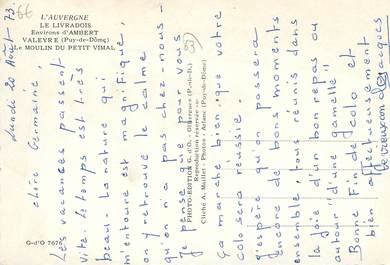 L'AUVERGNE
LE LIVRADOIS
Environs d'AMBERT
VALEYRE (Puy-de-Dôme)
LE MOULIN DU PETIT VIMAL
66
Lundi 20 Août 73.
chère Germaine,
Les vacances passent
vite le temps est très
beau - La nature qui
m'entoure est magnifique,
on y retrouve le calme
qu'on n'a pas chez-nous -
je pense que pour vous
63
PHOTO-EDITION G. d'O. - Olliergues (P.-de-D.)
Reproduction réservée
Cliché A. Maillet - Photos - Arlanc (Puy-de-Dôme)
ça marche bien, que votre
colo sera réussie.
J'espère qu'on passera
encore de bons moments
ensemble, tous réunis dans
la joie d'un bon repas ou
autour "d'une gamelle"
Bonne Fin de colo et
bien affectueusement
Jacques
G-d'O 7676